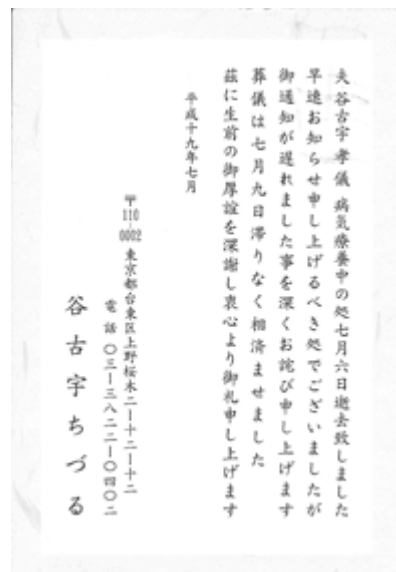 夫谷古宇 孝儀 病気療養中の処七月六日逝去致しました
早速お知らせ申し上げるべき処でございましたが
御通知が遅れました事を深くお詫び申し上げます
葬儀は七月九日滞りなく相済ませました
茲に生前の御厚誼を深謝し衷心より御礼申し上げます
平成十九年七月
〒110-0002 東京都台東区上野桜木二ー十二ー十二
電話 〇三ー三八二二ー〇四〇二
谷古宇ちづる